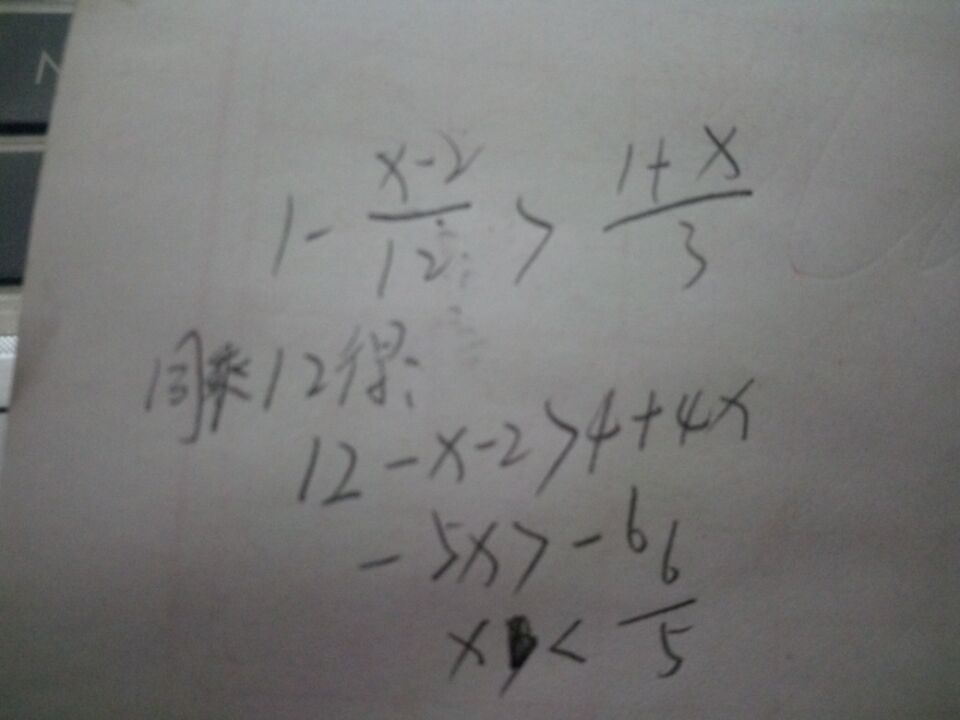 1 - \frac{x-2}{12} > \frac{1+x}{3}
同乘12得:
12-x-2>4+4x
-5x>-6
x < \frac{6}{5}